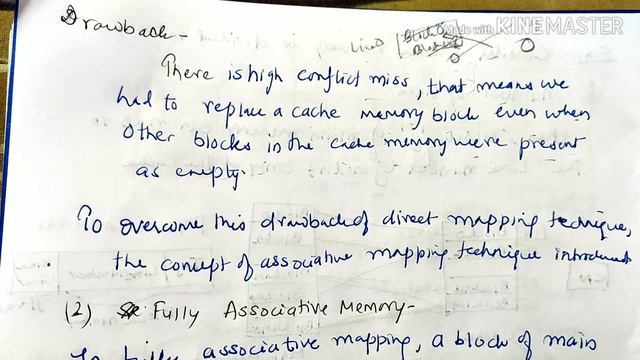 Drawback-
Made with KINEMASTER
There is high conflict miss, that means we
had to replace a cache memory block even when
other blocks in the cache memory were present
as empty.
To overcome this drawback of direct mapping technique,
the concept of associative mapping technique introduced
(2) Fully Associative Memory-
In fully associative mapping, a block of main